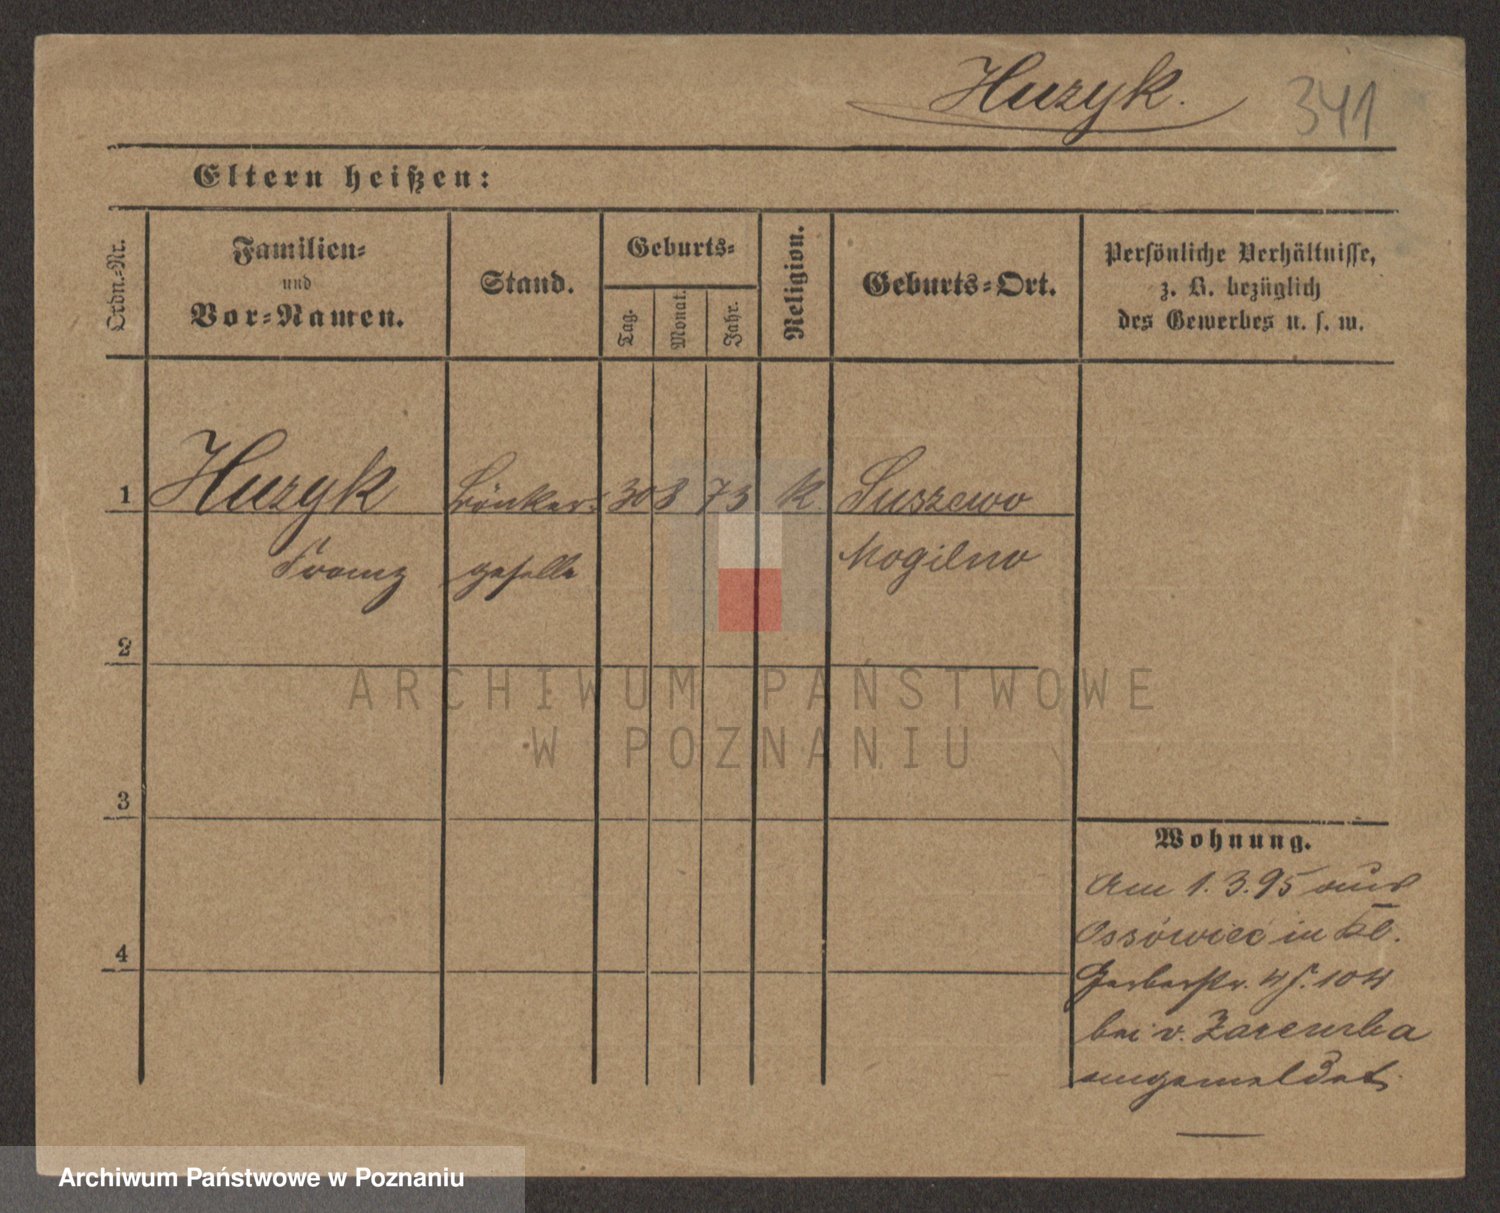 Huzyk. 341
Eltern heißen:
Ordn.-Nr.
Familien-
und
Vor-Namen.
Stand.
Geburts-
Tag.
Monat.
Jahr.
Religion.
Geburts-Ort.
Persönliche Verhältnisse,
z. B. bezüglich
des Gewerbes u. s. w.
1 Huzyk 30 8 73 K. Suszewo
Franz geselle Mogilno
2
ARCHIWUM PAŃSTWOWE
W POZNANIU
3
Wohnung.
Am 1. 3. 95 aus
Ossówiec in Kl.
4
Gerberstr. 4
bei v. Zaremba
angemeldet.
Archiwum Państwowe w Poznaniu